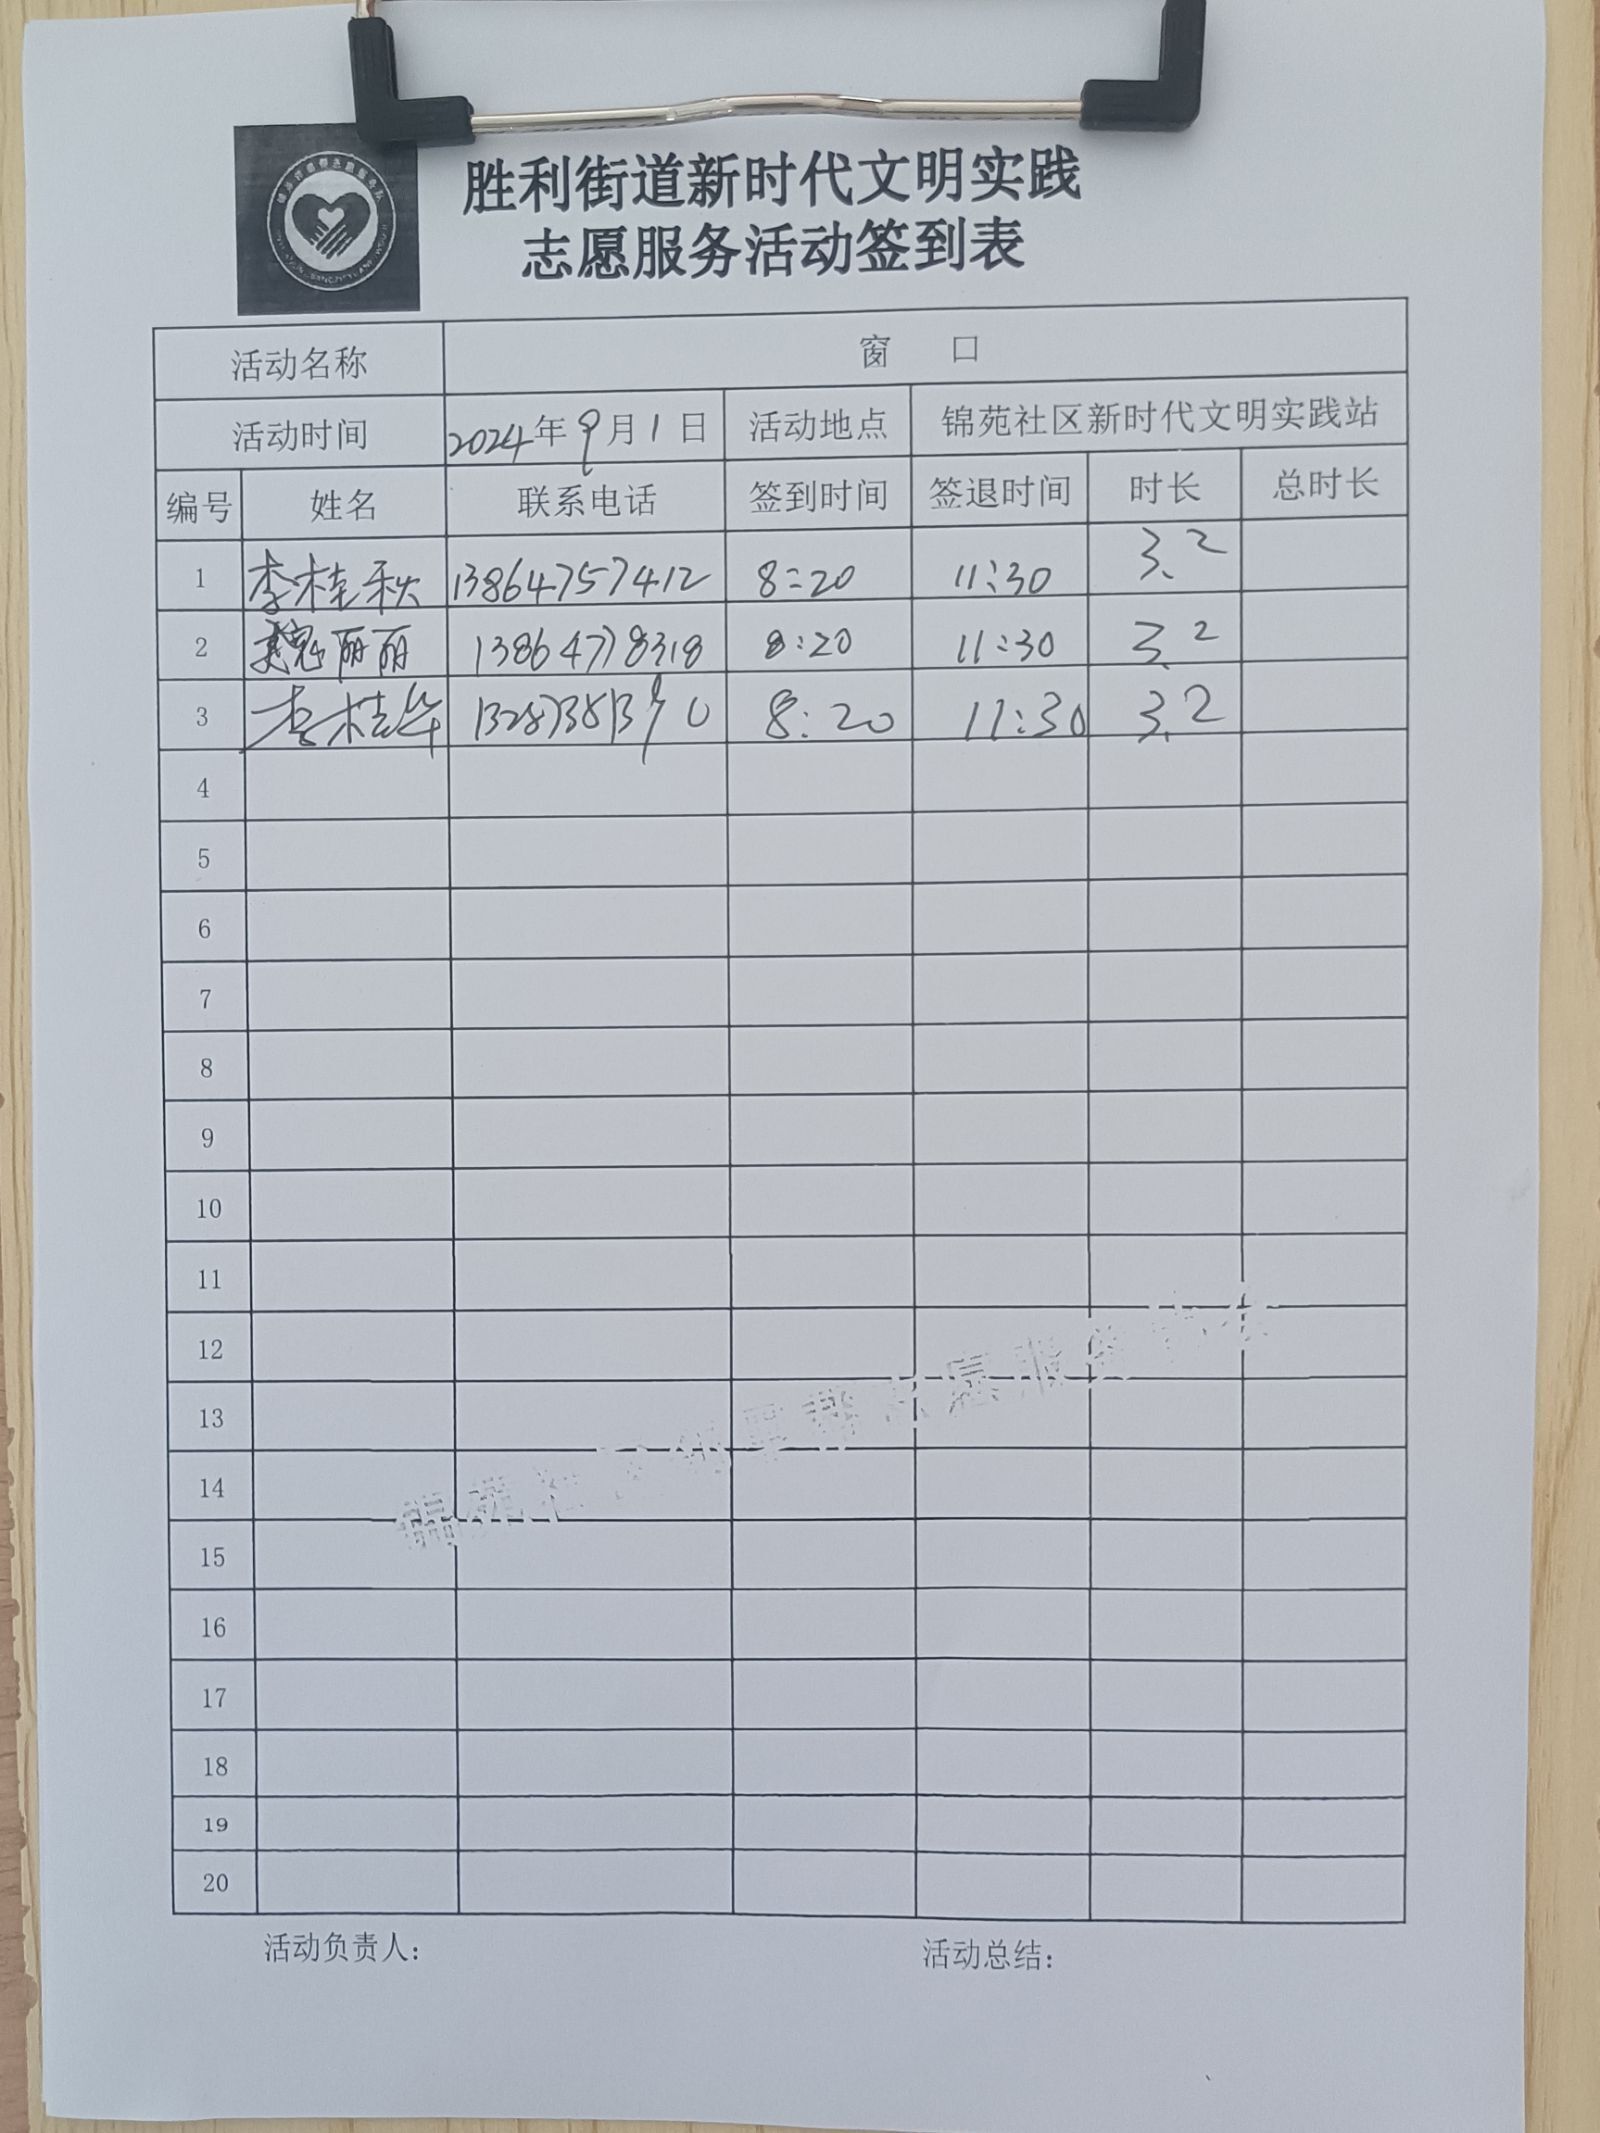 胜利街道新时代文明实践
志愿服务活动签到表
活动名称 窗 口
活动时间 2024年9月1日 活动地点 锦苑社区新时代文明实践站
编号 姓名 联系电话 签到时间 签退时间 时长 总时长
1 李桂秋 13864757412 8:20 11:30 3.2
2 魏丽丽 13864778318 8:20 11:30 3.2
3 李桂华 8:20 11:30 3.2
4
5
6
7
8
9
10
11
12
13
14
15
16
17
18
19
20
锦苑社区 志愿服务
活动负责人： 活动总结：